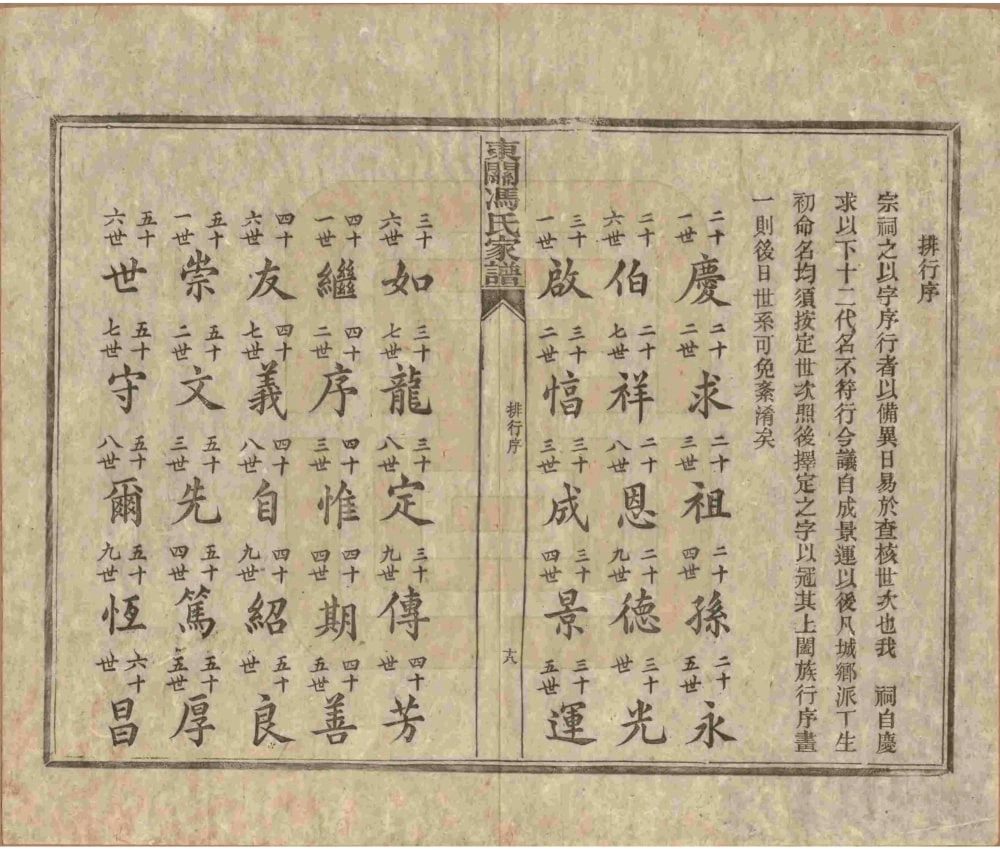 排行序
宗祠之以字序行者以備異日易於查核世次也我 祠自慶
求以下十二代名不符行今議自成景運以後凡城鄉派丁生
初命名均須按定世次照後擇定之字以冠其上闔族行序畫
一則後日世系可免紊淆矣
二十一世 慶 二十二世 求 二十三世 祖 二十四世 孫 二十五世 永
二十六世 伯 二十七世 祥 二十八世 恩 二十九世 德 三十世 光
三十一世 啟 三十二世 愊 三十三世 成 三十四世 景 三十五世 運
東關馮氏家譜
排行序
三十六世 如 三十七世 龍 三十八世 定 三十九世 傳 四十世 芳
四十一世 繼 四十二世 序 四十三世 惟 四十四世 期 四十五世 善
四十六世 友 四十七世 義 四十八世 自 四十九世 紹 五十世 良
五十一世 崇 五十二世 文 五十三世 先 五十四世 篤 五十五世 厚
五十六世 世 五十七世 守 五十八世 爾 五十九世 恆 六十世 昌